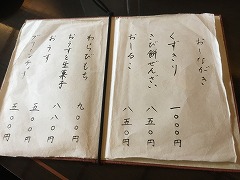 おしながき
くずきり 一、〇〇〇円
きび餅ぜんざい 八五〇円
おしるこ 八五〇円
わらびもち 九〇〇円
おうすと生菓子 八八〇円
おうす 五〇〇円
五〇〇円